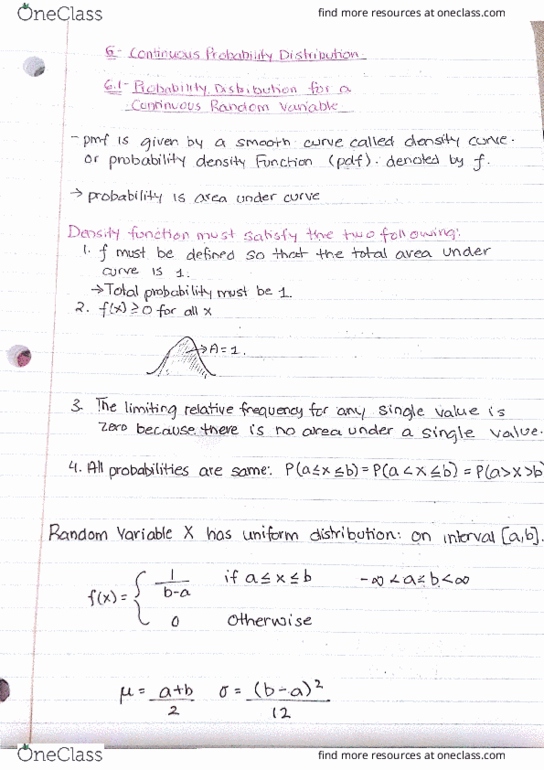 OneClass find more resources at oneclass.com
6- Continuous Probability Distribution
6.1- Probability Distribution for a
Continuous Random Variable
- pmf is given by a smooth curve called density curve.
or probability density function (pdf). denoted by f.
→ probability is area under curve
Density function must satisfy the two following:
1. f must be defined so that the total area under
curve is 1.
→ Total probability must be 1.
2. f(x) ≥ 0 for all x
→ A = 1.
3. The limiting relative frequency for any single value is
zero because there is no area under a single value.
4. All probabilities are same: P(a≤x≤b) = P(a<x≤b) = P(a>x>b)
Random Variable X has uniform distribution: on interval [a,b].
f(x) = { 1/(b-a) if a ≤ x ≤ b -∞ < a ≤ b < ∞
0 otherwise
μ = (a+b)/2 σ = (b-a)²/12
OneClass find more resources at oneclass.com